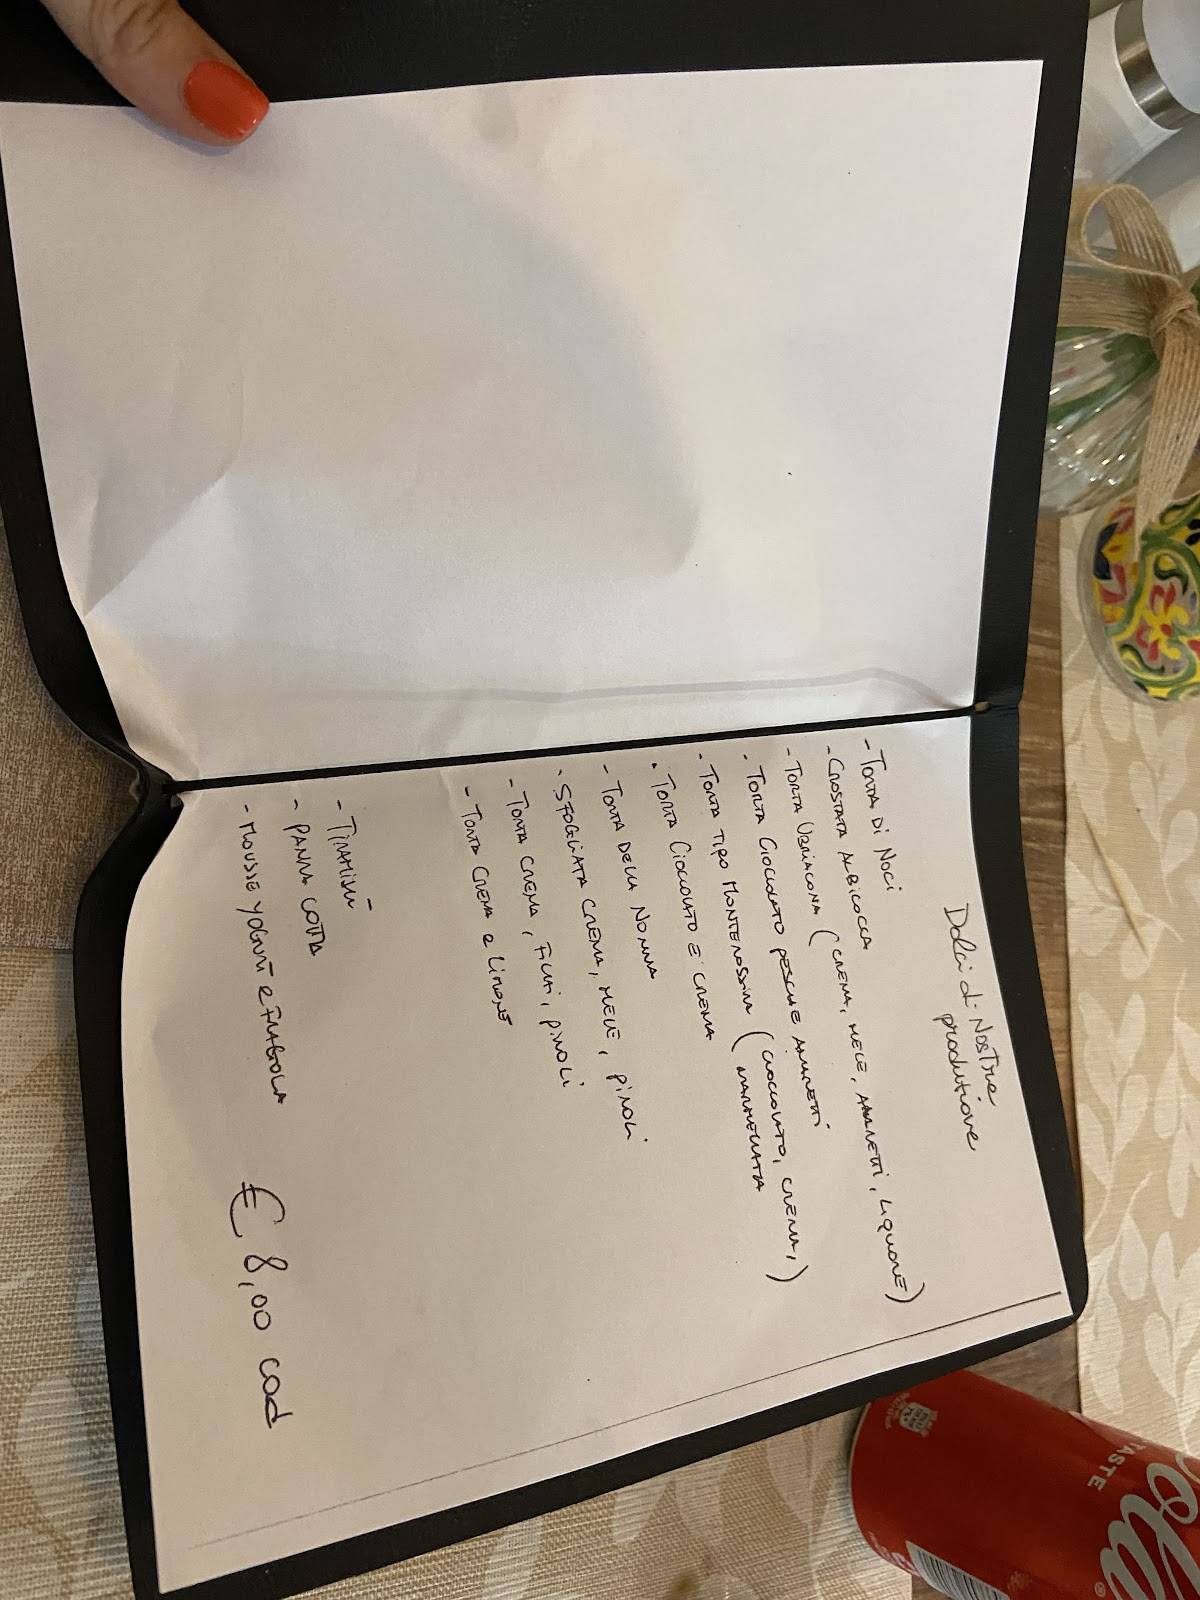 Dolci di Nostre
produzione
- TORTA DI NOCI
- CROSTATA ALBICOCCA
- TORTA UBRIACONA (CREMA, MELE, AMARETTI, LIQUORE)
- TORTA CIOCCOLATO PESCHE AMARETTI
- TORTA TIPO MONTEROSSINA (CIOCCOLATO, CREMA,
MARMELLATA)
- TORTA CIOCCOLATO E CREMA
- TORTA DELLA NONNA
- SFOGLIATA CREMA, MELE, PINOLI
- TORTA CREMA, FICHI, PINOLI
- TORTA CREMA e LIMONE
- TIRAMISÙ
- PANNA COTTA
- MOUSSE YOGURT e FRAGOLA
€ 8,00 cad
TASTE